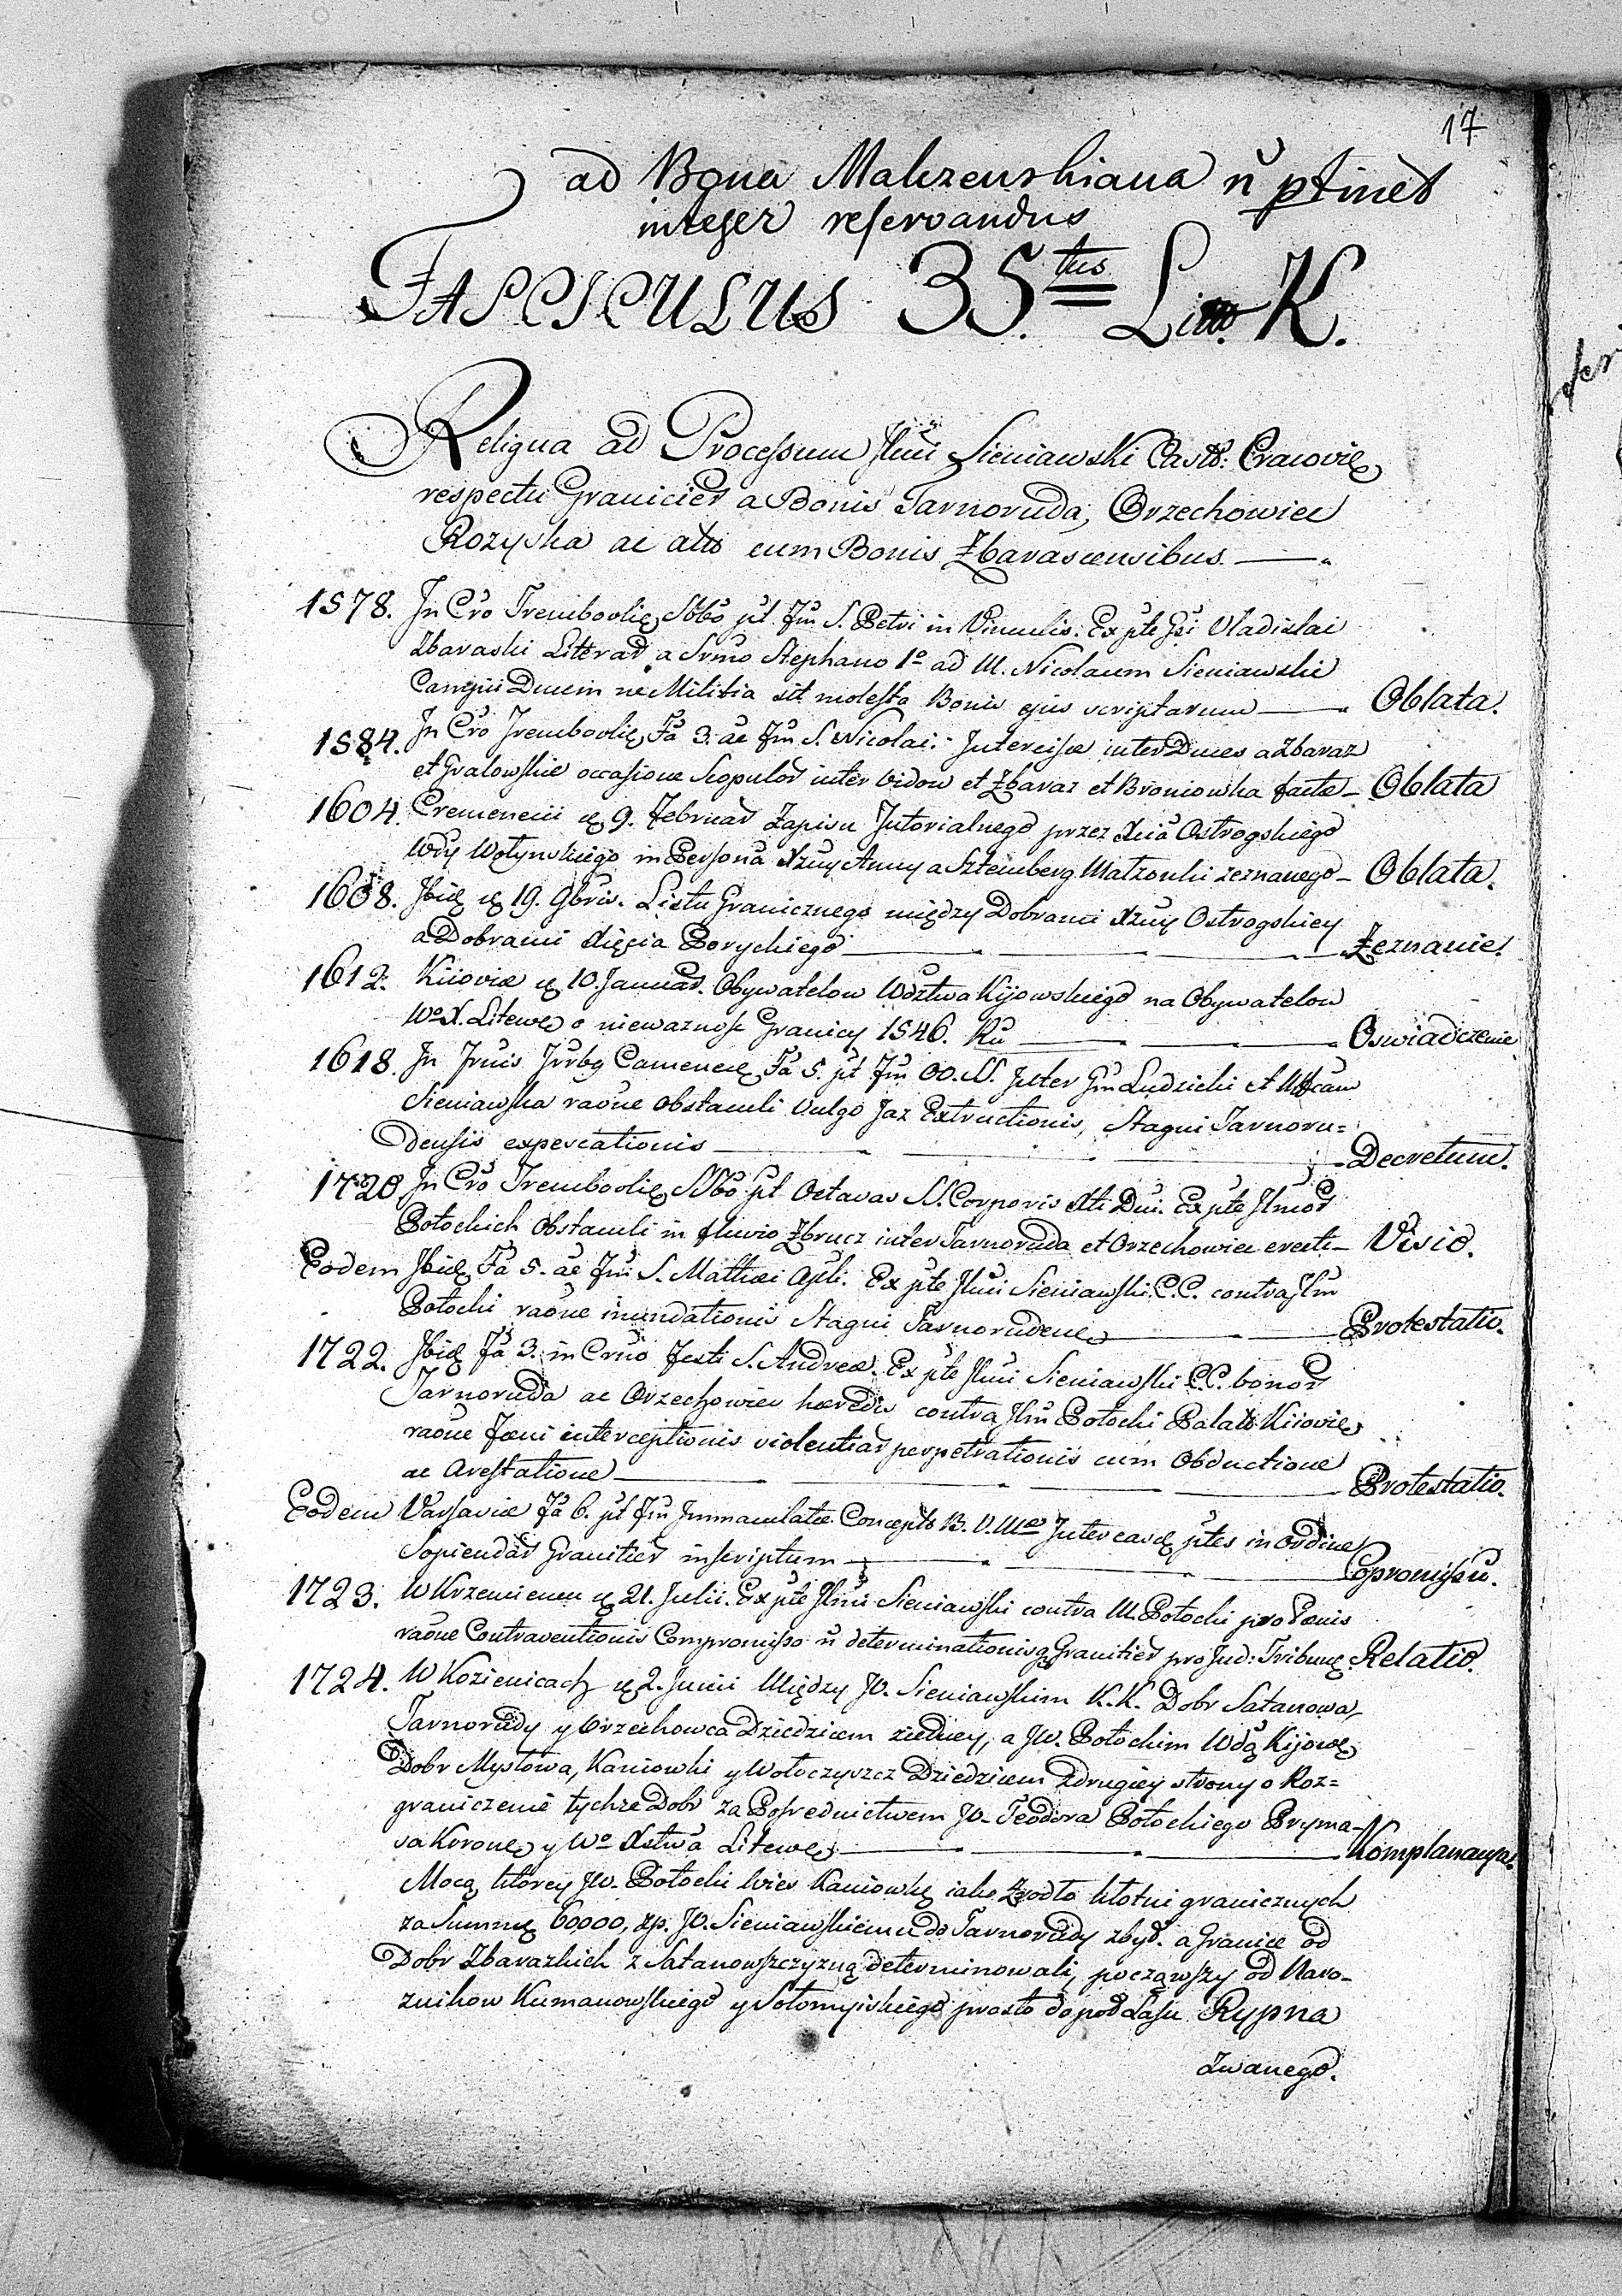 17
ad Bona Malczenskiana ñ ptinet
integer reservandus
FASCICULUS 35.tus Litt. K.
Reliqua ad Processum Illmi Sieniawski Castt: Cracovię
respectu Granicier a Bonis Tarnoruda, Orzechowiec
Rozyska ac aliis cum Bonis Zbarascensibus.
1578. In Cro Trembovlię Sbbo pt fm S. Petri in Vinculis. Ex pte Gsi Vladislai
Zbaraski Literar a Srmo Stephano 1o ad M. Nicolaum Sieniawski
Campi Ducem ne Militia sit molesta Bonis ejus scriptarum Oblata.
1584. In Cro Trembovlię Fa 3. ac fm S. Nicolai. Intercisæ inter Duces a Zbaraz
et Gralowskie occasione Scopulor inter Vidow et Zbaraz et Broniowka factę Oblata
1604. Cremenecii ę 9. Februar Zapisu Jutorialnego przez Xcia Ostrogskiego
Wdy Wołynskiego in Persona Xzny Anny a Sztemberg Małżonki zeznanego Oblata.
1608. Ibię ę 19. 9bris. Listu Granicznego między Dobrami Xzny Ostrogskiey
a Dobrami Xięcia Poryckiego Zeznanie.
1612. Kiioviæ ę 10. Januar. Obywatelow Wdztwa Kijowskiego na Obywatelow
Wo X. Litewę o niewaznosc Granicy 1546. Ru Oswiadczenie
1618. In Iruis Irrbg Camenecę Fa 5. pt fm OO. SS. Inter Gm Ludzicki et Mfcam
Sieniawska raõne obstaculi vulgo Jaz Extructionis, Stagni Tarnoru=
densis expescationis Decretum.
1720 In Cro Trembovlię Sbbo pt Octavas SS. Corporis Xti Dni. Ex pte Illmor
Potockich Obstaculi in fluvio Zbrucz inter Tarnoruda et Orzechowiec erecti Visio.
Eodem Ibię Fa 5. ac fm S. Matthæi Apli. Ex pte Illmi Sieniawski C.C. contra Illm
Potocki raõne inundationis Stagni Tarnorudenę Protestatio.
1722. Ibię Fa 3. in Crno Festi S. Andreæ. Ex pte Illmi Sieniawski C.C. bonor
Tarnoruda ac Orzechowiec hæredis contra Illm Potocki Palatt Kiiovię
raõne Fæni interceptionis violentiar perpetrationis cum Obductione
ac Arestatione Protestatio.
Eodem Varsaviæ Fa 6. pt fm Immaculatæ Conceptt B. V. Mæ Inter easdę ptes in ordine
Sopiendar Granitier inscriptum Copromissu.
1723. W Krzemiencu ę 21. Julii. Ex pte Illmi Sieniawski contra M. Potocki pro Pœnis
raõne Contraventionis Compromisso ñ determinationisq Granitier pro Jud: Tribunę. Relatio.
1724. W Kozienicach ę 2. Junii Między JW. Sieniawskim K.K. Dobr Satanowa,
Tarnorudy y Orzechowca Dziedzicem ziedney, a JW. Potockim Wdą Kijowę
Dobr Mysłowa, Kaniowki y Wołoczyszcz Dziedzicem zdrugiey strony o Roz=
graniczenie tychze Dobr za Posrednictwem JO. Teodora Potockiego Pryma-
sa Koronę y Wo Xstwa Litewę Komplanacya.
Mocą ktorey JW. Potocki Wies Kaniowkę iako Zrodło kłotni granicznych
za Summę 60000, zp. JW. Sieniawskiemu do Tarnorudy zbył. a Granice od
Dobr Zbarazkich z Satanowszczyzną determinowali, począwszy od Naro-
znikow Kumanowskiego y Sołomyiskiego prosto do pod Lasu Rypna
Zwanego.